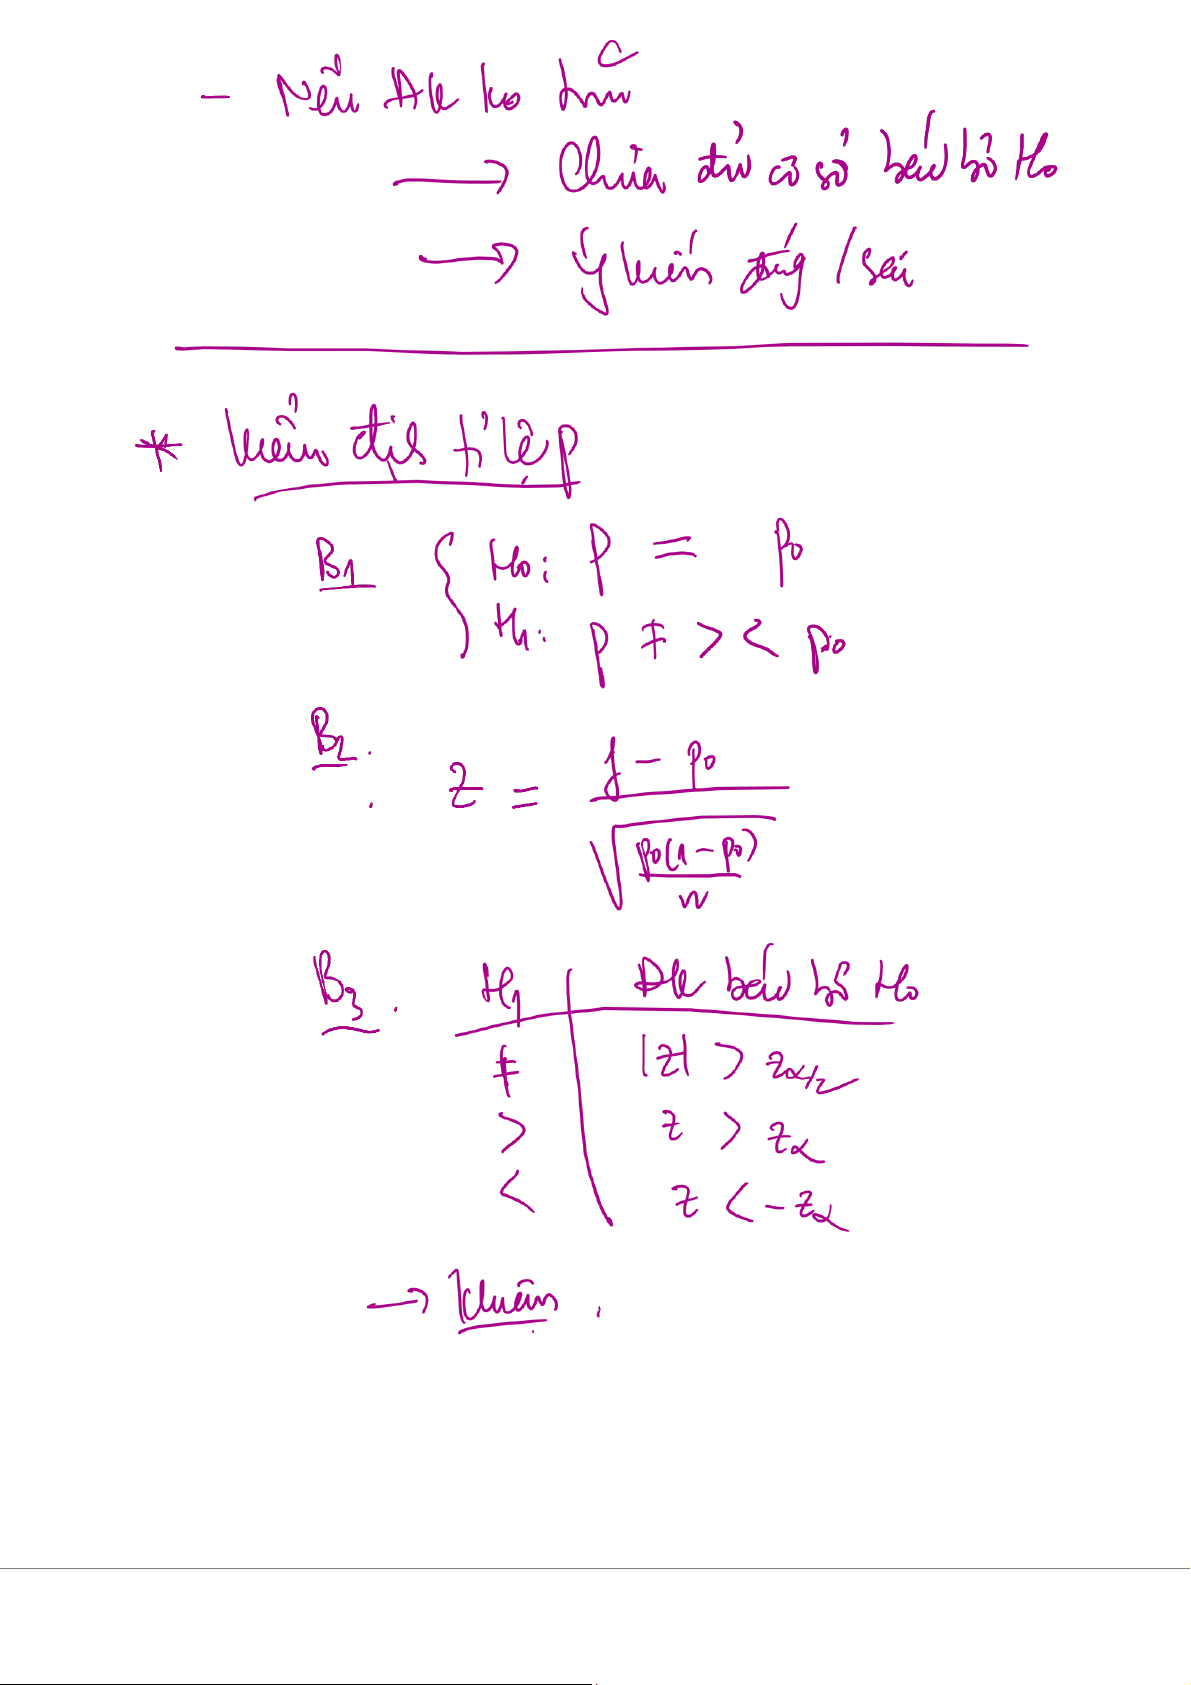 - Nếu ĐK ko
→ Chưa đủ cơ sở bác bỏ H₀
→ Ý kiến đúng / sai
* Kiểm định tỉ lệ p
B1 { H₀: p = p₀
H₁: p ≠ > < p₀
B2. Z = (f - p₀) / √(p₀(1 - p₀)/n)
B3. H₁ | ĐK bác bỏ H₀
≠ | |z| > z_α/2
> | z > z_α
< | z < -z_α
→ Kluận.